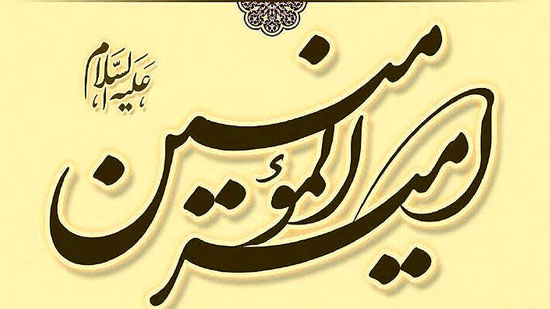 امیرالمؤمنین
علیه السَّلام